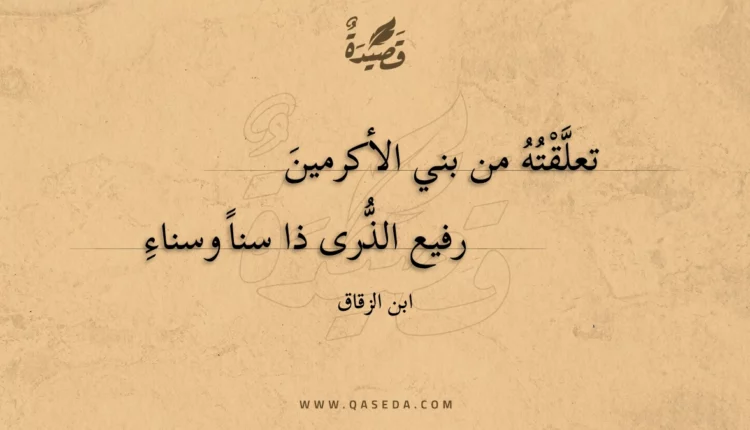 قَصِيْدَةٌ
تعلَّقْتُهُ من بني الأكرمينَ
رفيع الذُّرى ذا سناً وسناءِ
ابن الزقاق
WWW.QASEDA.COM